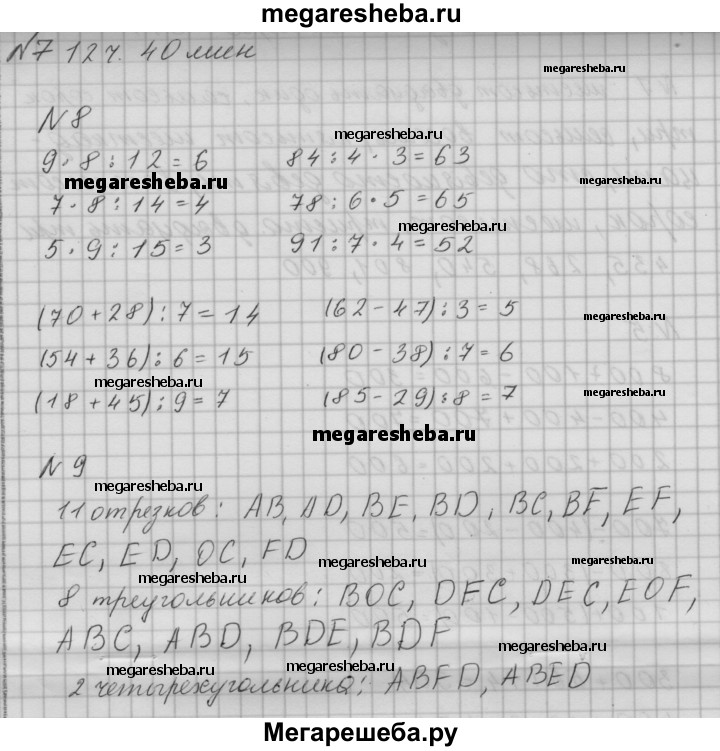 megaresheba.ru
№7 12 ч. 40 мин
megaresheba.ru
№8
megaresheba.ru
9 · 8 : 12 = 6 84 : 4 · 3 = 63
megaresheba.ru
7 · 8 : 14 = 4 78 : 6 · 5 = 65
megaresheba.ru
5 · 9 : 15 = 3 91 : 7 · 4 = 52
(70 + 28) : 7 = 14 (62 - 47) : 3 = 5
(54 + 36) : 6 = 15 (80 - 38) : 7 = 6
megaresheba.ru megaresheba.ru
(18 + 45) : 9 = 7 (85 - 29) : 8 = 7
megaresheba.ru
№9
megaresheba.ru
11 отрезков: AB, AD, BE, BD, BC, BF, EF,
megaresheba.ru
EC, ED, OC, FD
megaresheba.ru megaresheba.ru
8 треугольников: BOC, DFC, DEC, EOF,
ABC, ABD, BDE, BDF
megaresheba.ru
megaresheba.ru megaresheba.ru
2 четырехугольника: ABFD, ABED
Мегарешеба.ру